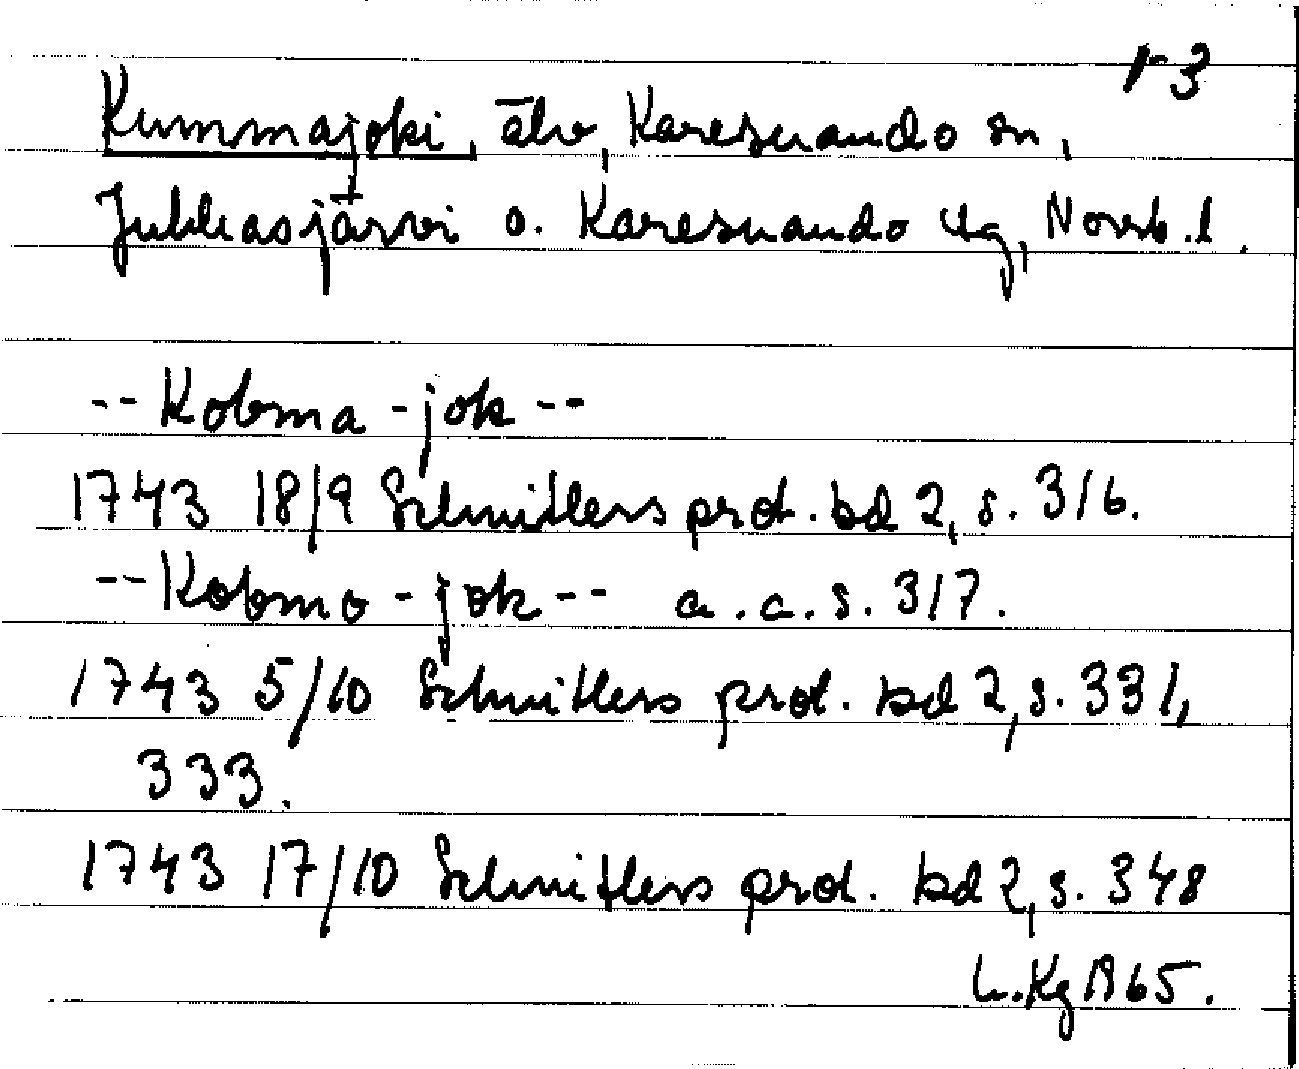 1-3
Kummajoki, älv, Karesuando sn,
Jukkasjärvi o. Karesuando tg, Norrb. l.
-- Kobma-jok --
1743 18/9 Schnitlers prot. bd 2, s. 316.
-- Kobmo-jok -- a.a. s. 317.
1743 5/10 Schnitlers prot. bd 2, s. 331,
333.
1743 17/10 Schnitlers prot. bd 2, s. 348
L.Kg 1965.